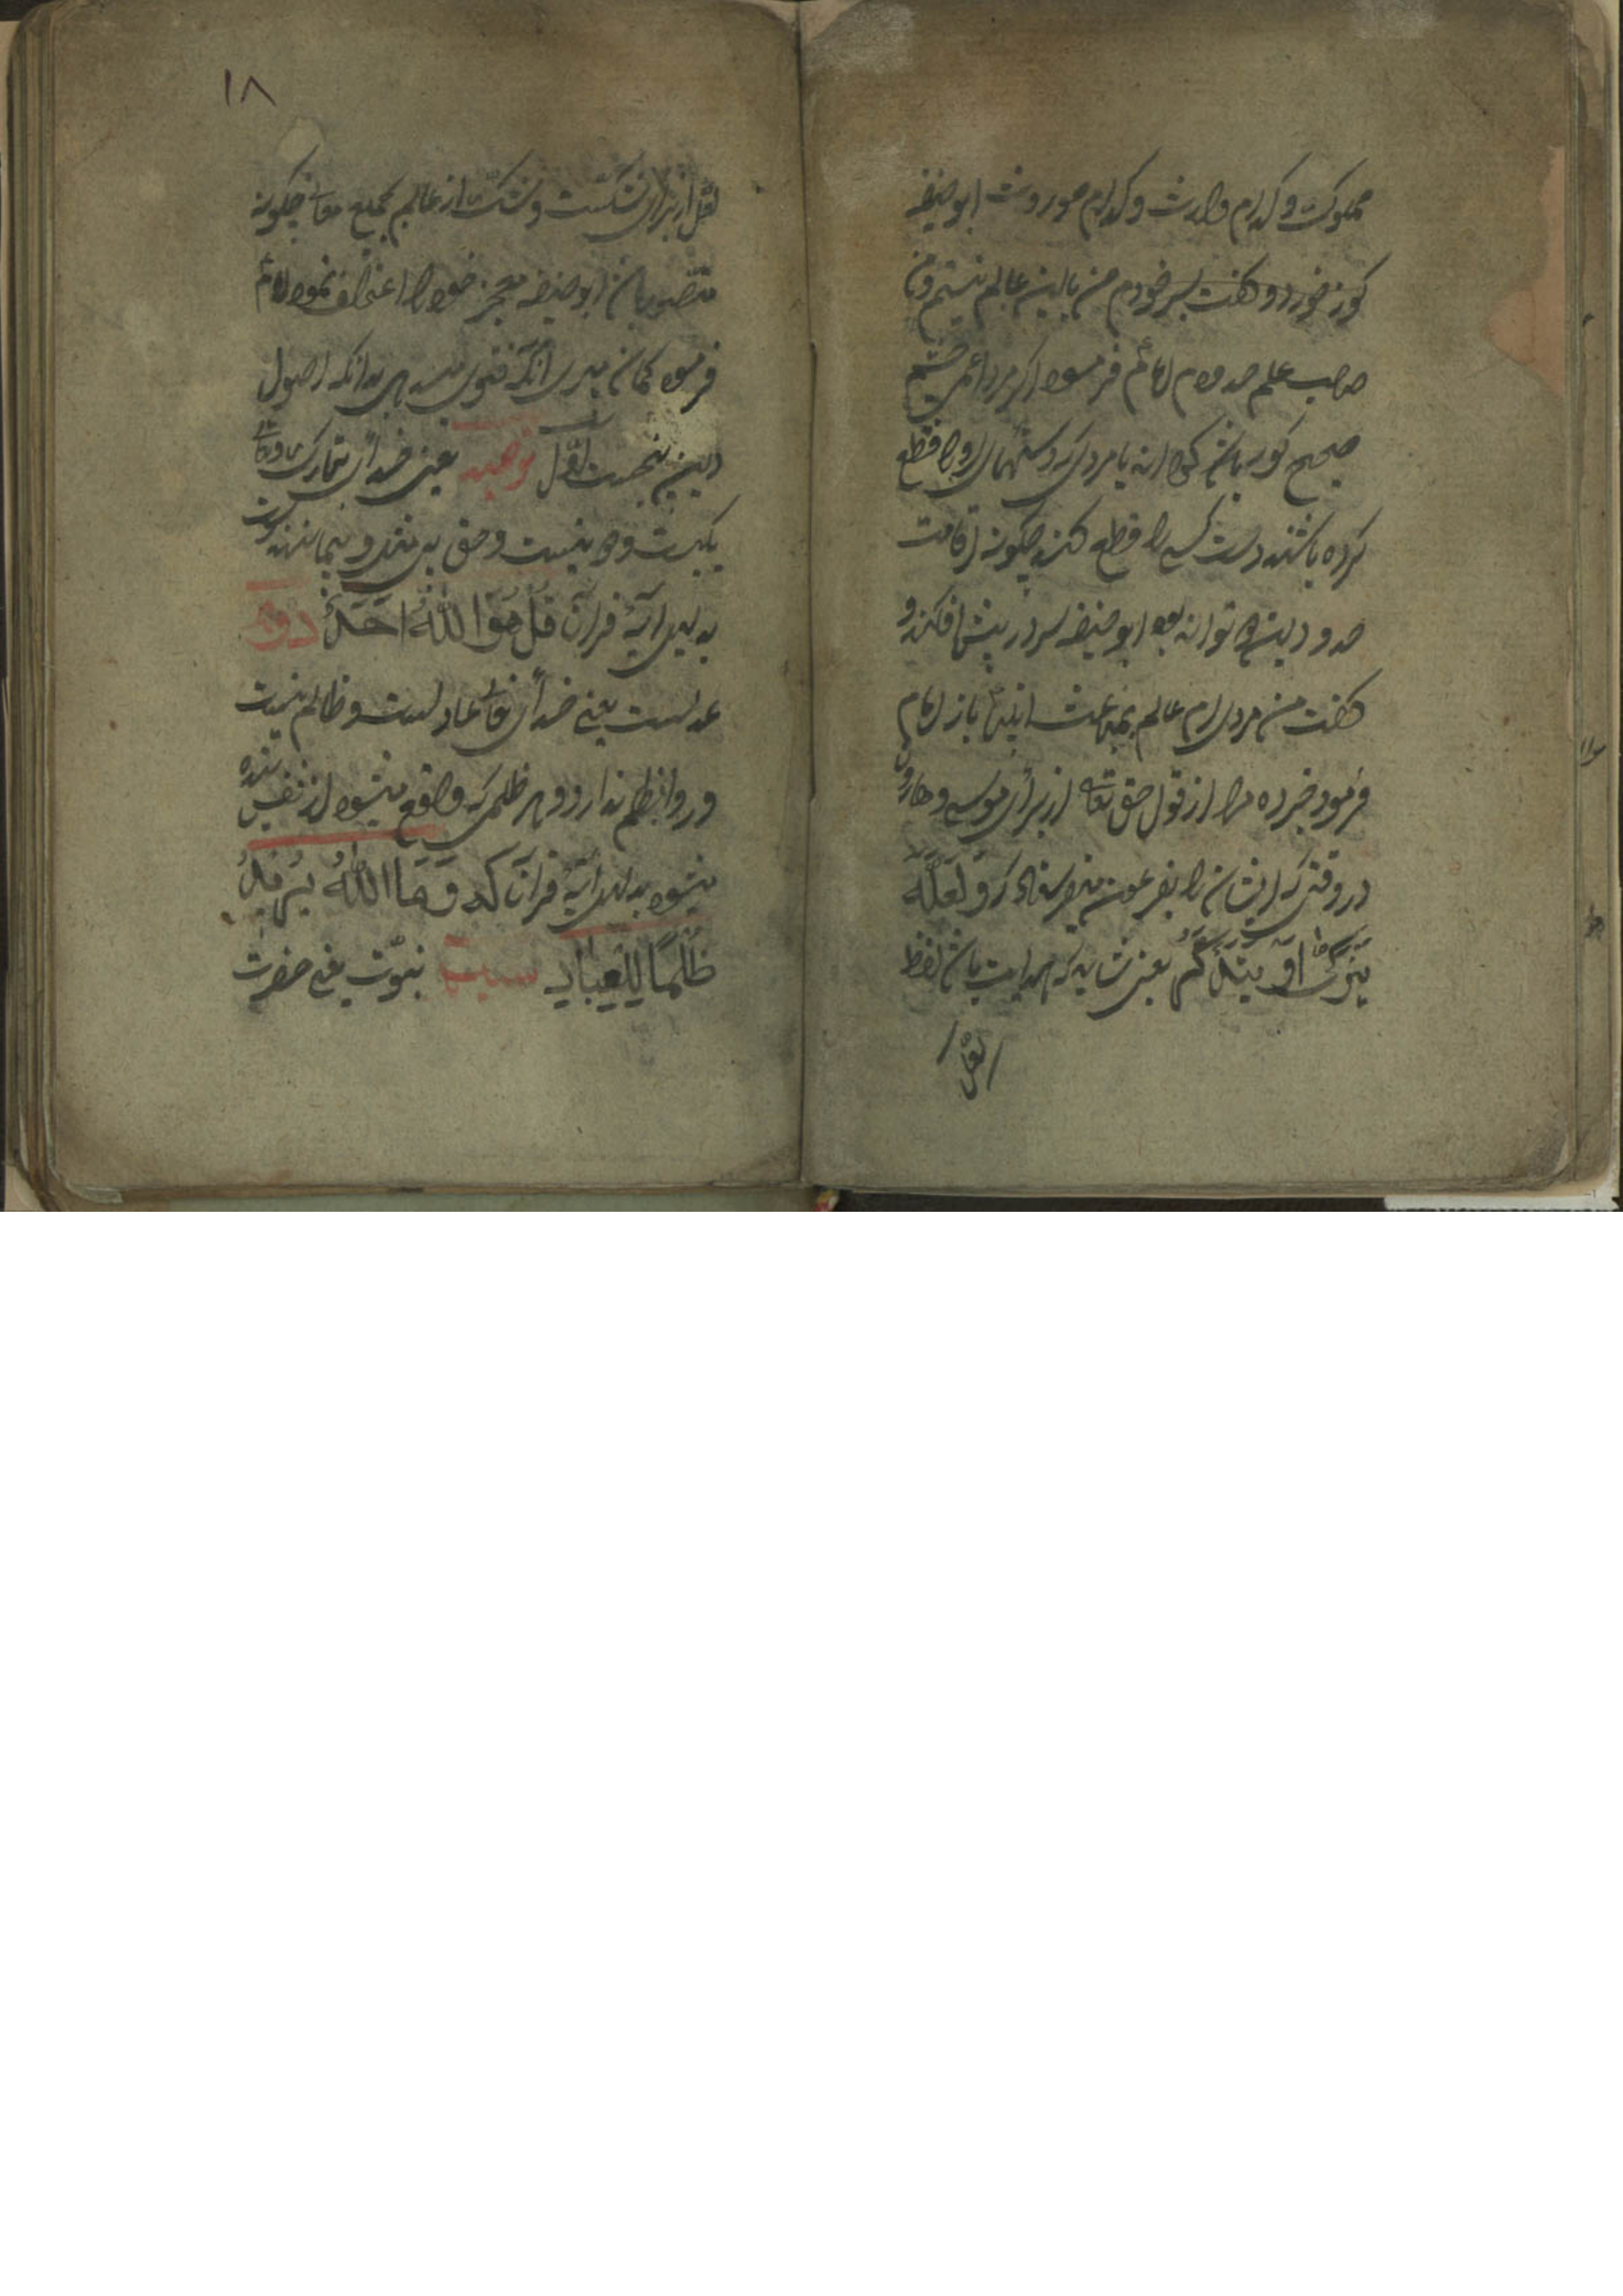 مملوکت و کدام وارث و کدام موروث ابو حنیفه
کوز خورد و گفت بسر خودم من باین عالم نیستم و من
صاحب علم حدودم امام فرمود اگر مرد اعمی چشم
صحیح کور باشد کجا اند یا مردی که دستهای او را قطع
کرده باشند دست کسی را قطع کند چکونه اقامت
حدود دین می تواند بود ابو حنیفه سر در پیش افکند و
گفت من مردی ام عالم بمباعث انبیا باز امام
فرمود خبر ده مرا از قول حق تعالی از برای موسی و هارون
در وقتی که ایشان را بفرعون میفرستاد که و لعله
یتذکر او یتذکر یعنی شاید که هدایت یابد لفظ
لعل
۱۸
لعل از برای شکست و شک از عالم بجمیع معانی چکونه
متصور باشد ابو حنیفه بعجز خود را اعتراف نمود امام
فرمود گمان میبری آنکه فتوی میدهی بدانکه اصول
دین پنجست اول توحید یعنی خدای تبارک و تعالی
یکیست و دو نیست و حق بی مثل و بیمانند است
بدلیل آیهٔ قرآن قُلْ هُوَ اللهُ اَحَدٌ دویم
عدلست یعنی خدای تعالی عادلست و ظالم نیست
و روا بظلم ندارد و هر ظلمی که واقع میشود از نفس بنده
میشود بدلیل آیهٔ قرآن که وَمَا اللهُ یُرِیدُ
ظُلْمًا لِلْعِبَادِ سیم نبوّت یعنی حضرت